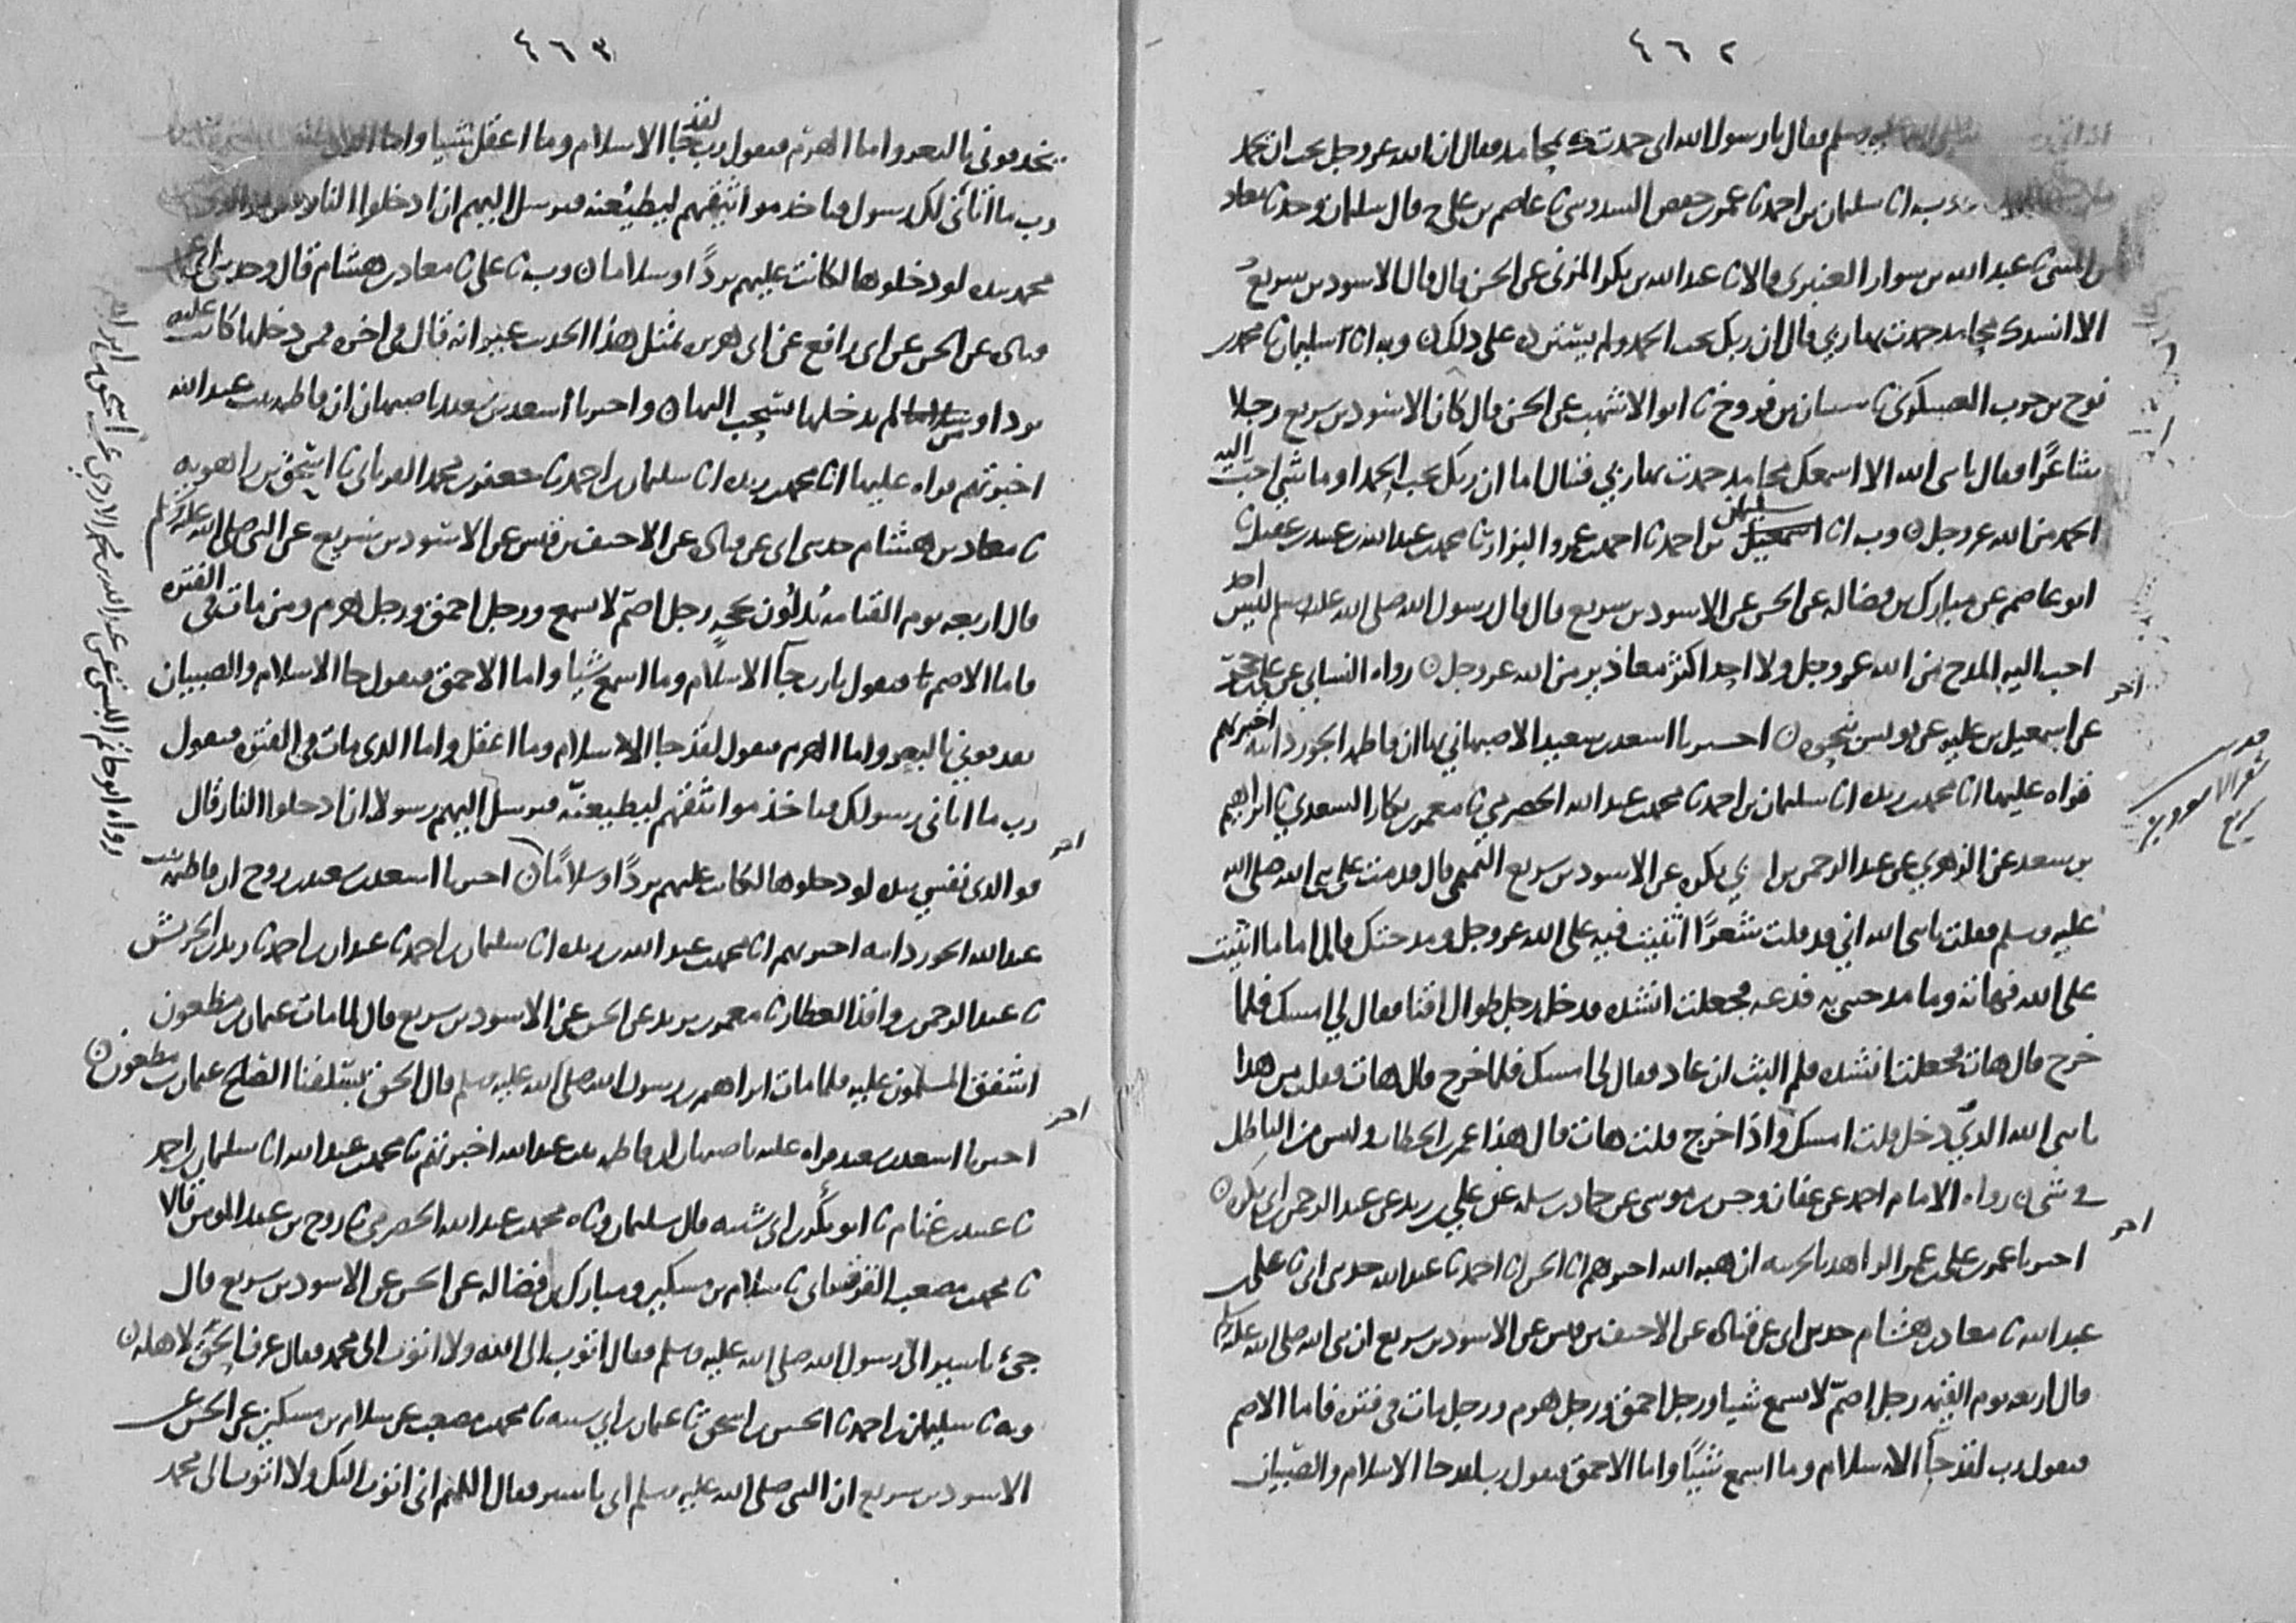 ٤٦٢
عليه وسلم فقال يا رسول الله اني حمدتك بمحامد فقال ان الله عز وجل يحب ان يحمد
وبه انا سليمان بن احمد نا عمر بن حفص السدوسي نا عاصم بن علي ح قال سليمان وحدثنا معاذ
بن المثنى نا عبد الله بن سوار العنبري قالا نا عبد الله بن بكر المزني عن الحسن قال قال الاسود بن سريع
الا انشدك محامد حمدت بها ربي قال ان ربك يحب الحمد ولم يستزده على ذلك ن وبه انا سليمان نا محمد بن
نوح بن حرب العسكري نا شيبان بن فروخ نا ابو الاشهب عن الحسن قال كان الاسود بن سريع رجلا
شاعرا فقال يا نبي الله الا اسمعك محامد حمدت بها ربي فقال اما ان ربك يحب الحمد او ما شي احب اليه
الحمد من الله عز وجل ن وبه انا سليمان بن احمد نا احمد بن عمرو البزار نا محمد بن عبد الله بن عبيد بن عقيل نا
ابو عاصم عن مبارك بن فضاله عن الحسن عن الاسود بن سريع قال قال رسول الله صلى الله عليه وسلم ليس احد
احب اليه المدح من الله عز وجل ولا احد اكثر معاذير من الله عز وجل ن رواه النسائي عن علي بن حجر
عن اسمعيل بن عليه عن يونس نحوه ن اخبرنا اسعد بن سعيد الاصبهاني بها ان فاطمه الجوزدانيه اخبرتهم
قراه عليها انا محمد بن ريده انا سليمان بن احمد نا محمد بن عبد الله الحضرمي نا معمر بن بكار السعدي نا ابراهيم
بن سعد عن الزهري عن عبد الرحمن بن ابي بكره عن الاسود بن سريع التميمي قال قدمت على نبي الله صلى الله
عليه وسلم فقلت يا نبي الله اني قد قلت شعرا اثنيت فيه على الله عز وجل ومدحتك قال اما ما اثنيت
على الله فهاته وما مدحتني به فدعه فجعلت انشده فدخل رجل طوال اقنا فقال لي امسك فلما
خرج قال هات فجعلت انشده فلم البث ان عاد فقال لي امسك فلما خرج قال هات فقلت من هذا
يا نبي الله الذي دخل قلت امسك واذا خرج قلت هات قال هذا عمر بن الخطاب وليس من الباطل
في شي ن رواه الامام احمد عن عفان وحسن بن موسى عن حماد بن سلمه عن علي بن زيد عن عبد الرحمن بن ابي بكره ن
اخبرنا عمر بن علي بن عمر الواعظ بالحربيه ان هبه الله اخبرهم انا الحسن انا احمد نا عبد الله حدثني ابي نا علي بن
عبد الله نا معاذ بن هشام حدثني ابي عن قتاده عن الاحنف بن قيس عن الاسود بن سريع ان نبي الله صلى الله عليه وسلم
قال اربعه يوم القيمه رجل اصم لا يسمع شيا ورجل احمق ورجل هرم ورجل مات في فتره فاما الاصم
فيقول رب لقد جآ الاسلام وما اسمع شيئا واما الاحمق فيقول رب لقد جا الاسلام والصبيان
اخر
اخر
٤٦٣
يخذفوني بالبعر واما الهرم فيقول رب لقد جا الاسلام وما اعقل شيا واما الذي
رب ما اتاني لك رسول فياخذ مواثيقهم ليطيعنه فيرسل اليهم ان ادخلوا النار
محمد بيده لو دخلوها لكانت عليهم بردا وسلاما ن وبه نا علي نا معاذ بن هشام قال وحدثني ابي عن
قتاده عن الحسن عن ابي رافع عن ابي هريره بمثل هذا الحديث غير انه قال في اخره فمن دخلها كانت عليه
بردا وسلاما ومن لم يدخلها يسحب اليها ن واخبرنا اسعد بن سعيد باصبهان ان فاطمه بنت عبد الله
اخبرتهم قراه عليها انا محمد بن ريده انا سليمان بن احمد نا جعفر بن محمد الفريابي نا اسحق بن راهويه
نا معاذ بن هشام حدثني ابي عن قتاده عن الاحنف بن قيس عن الاسود بن سريع عن النبي صلى الله عليه وسلم
قال اربعه يوم القيامه يدلون بحجه رجل اصم لا يسمع ورجل احمق ورجل هرم ومن مات في الفتره
فاما الاصم فيقول يا رب جآ الاسلام وما اسمع شيا واما الاحمق فيقول جا الاسلام والصبيان
يقذفوني بالبعر واما الهرم فيقول لقد جا الاسلام وما اعقل واما الذي مات في الفتره فيقول
رب ما اتاني رسولك فياخذ مواثيقهم ليطيعنه فيرسل اليهم رسولا ان ادخلوا النار قال
فو الذي نفسي بيده لو دخلوها لكانت عليهم بردا وسلاما ن اخبرنا اسعد بن سعيد بن روح ان فاطمه بنت
عبد الله الجوزدانيه اخبرتهم انا محمد بن عبد الله بن ريده انا سليمان بن احمد نا عبدان بن احمد نا زيد بن الحريش
نا عبد الرحمن بن واقد العطار نا معمر بن يزيد عن الحسن عن الاسود بن سريع قال لما مات عثمان بن مظعون
اشفق المسلمون عليه فلما مات ابراهيم بن رسول الله صلى الله عليه وسلم قال الحق بسلفنا الصالح عثمان بن مظعون ن
اخبرنا اسعد بن سعيد قراه عليه باصبهان ان فاطمه بنت عبد الله اخبرتهم نا محمد بن عبد الله انا سليمان بن احمد
نا عبيد بن غنام نا ابو بكر بن ابي شيبه قال سليمان ونا محمد بن عبد الله الحضرمي نا روح بن عبد المومن قالا
نا محمد بن مصعب القرقساني نا سلام بن مسكين ومبارك بن فضاله عن الحسن عن الاسود بن سريع قال
جئ باسير الى رسول الله صلى الله عليه وسلم فقال اتوب الى الله ولا اتوب الى محمد فقال عرف الحق لاهله ن
وبه نا سليمان بن احمد نا الحسين بن اسحق نا عثمان بن ابي شيبه نا محمد بن مصعب عن سلام بن مسكين عن الحسن عن
الاسود بن سريع ان النبي صلى الله عليه وسلم اتي باسير فقال اللهم اني اتوب اليك ولا اتوب الى محمد
اخر
اخر
رواه ابو حاتم البستي عن عبد الله بن محمد الازدي عن اسحق بن ابراهيم